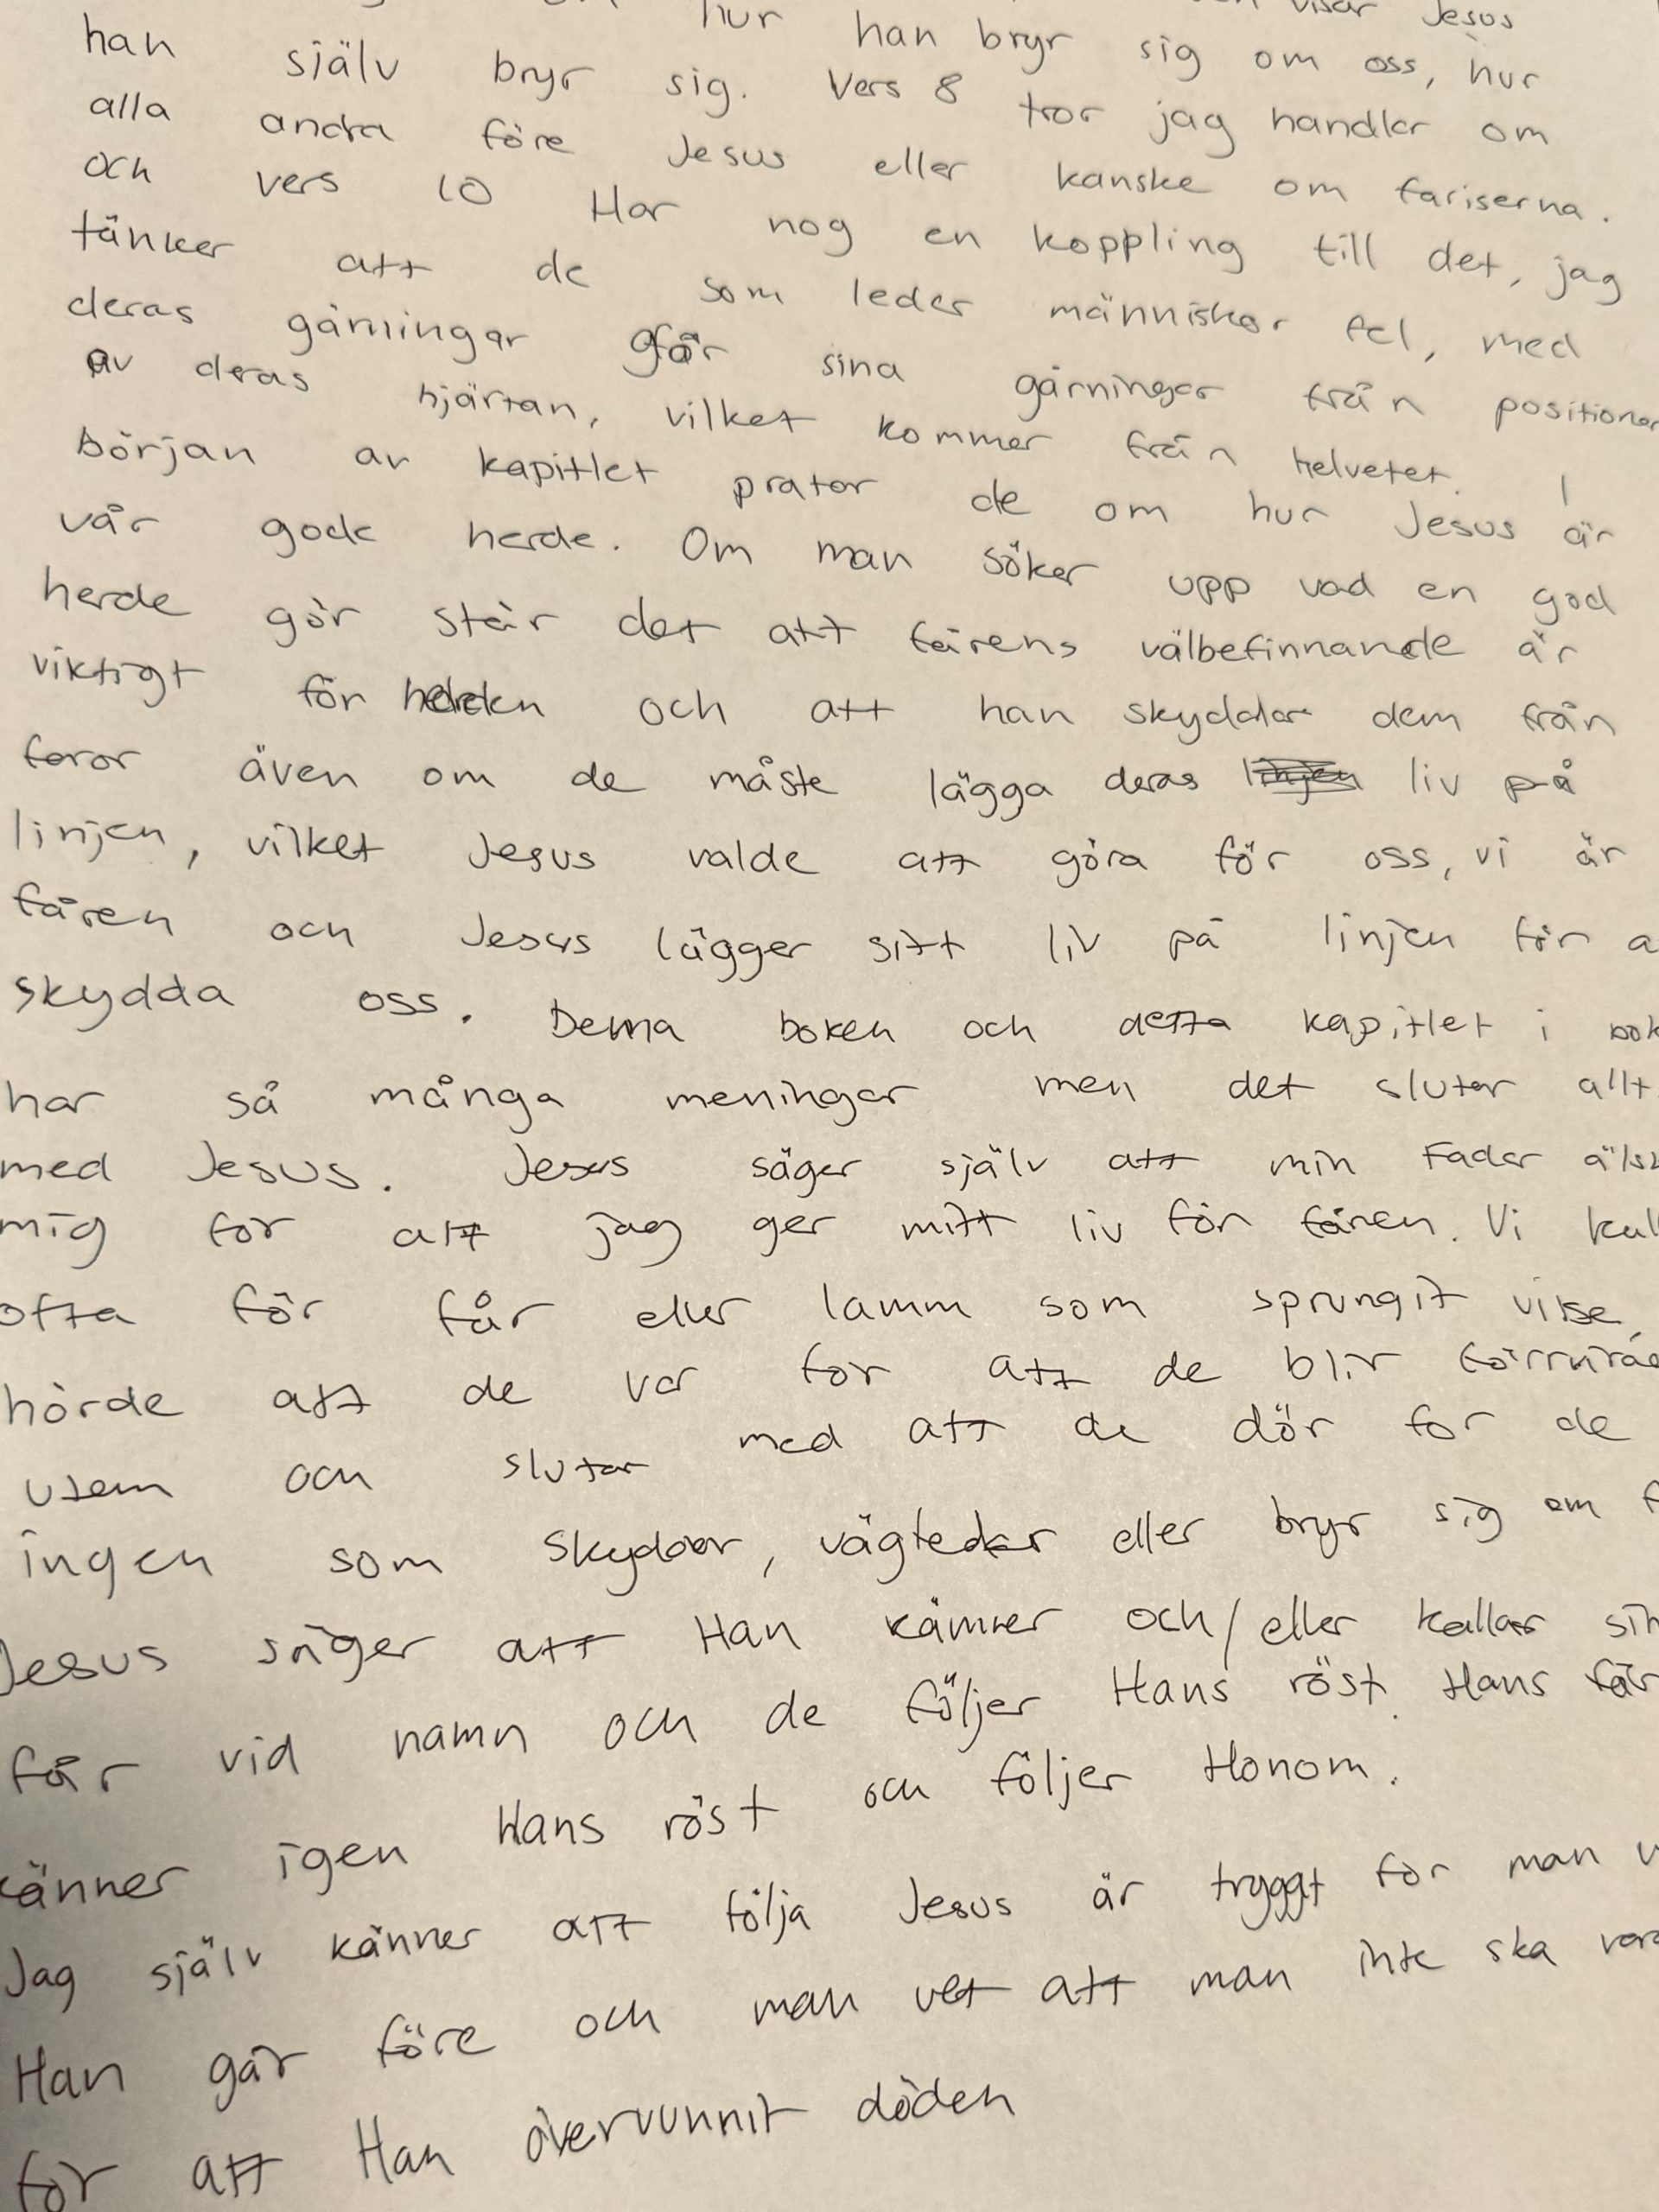 hur visar Jesus
han själv bryr sig. han bryr sig om oss, hur
alla andra före Jesus Vers 8 tror jag handlar om
och vers 10 Har eller kanske om fariserna.
tänker att de nog en koppling till det, jag
deras gärningar som leder människor fel, med
av deras hjärtan, får sina gärningar från positionen
början av kapitlet vilket kommer från helvetet. I
vår gode herde. pratar de om hur Jesus är
herde gör står Om man söker upp vad en god
det att fårens välbefinnande är
viktigt för herden och att han skyddar dem från
faror även om de måste lägga deras liv på
linjen, vilket Jesus valde att göra för oss, vi är
fåren och Jesus lägger sitt liv på linjen för a
skydda oss. Denna boken och detta kapitlet i bok
har så många meningar men det slutar allt
med Jesus. Jesus säger själv att min Fader älsk
mig för att jag ger mitt liv för fåren. Vi kal
ofta för får eller lamm som sprungit vilse,
hörde att de var för att de blir
utem och slutar med att de dör for de
ingen som skyddar, vägleder eller bryr sig om f
Jesus säger att Han känner och/eller kallar sin
får vid namn och de följer Hans röst. Hans får
känner igen Hans röst och följer Honom.
Jag själv känner att följa Jesus är tryggt för man v
Han går före och man vet att man inte ska vara
för att Han övervunnit döden